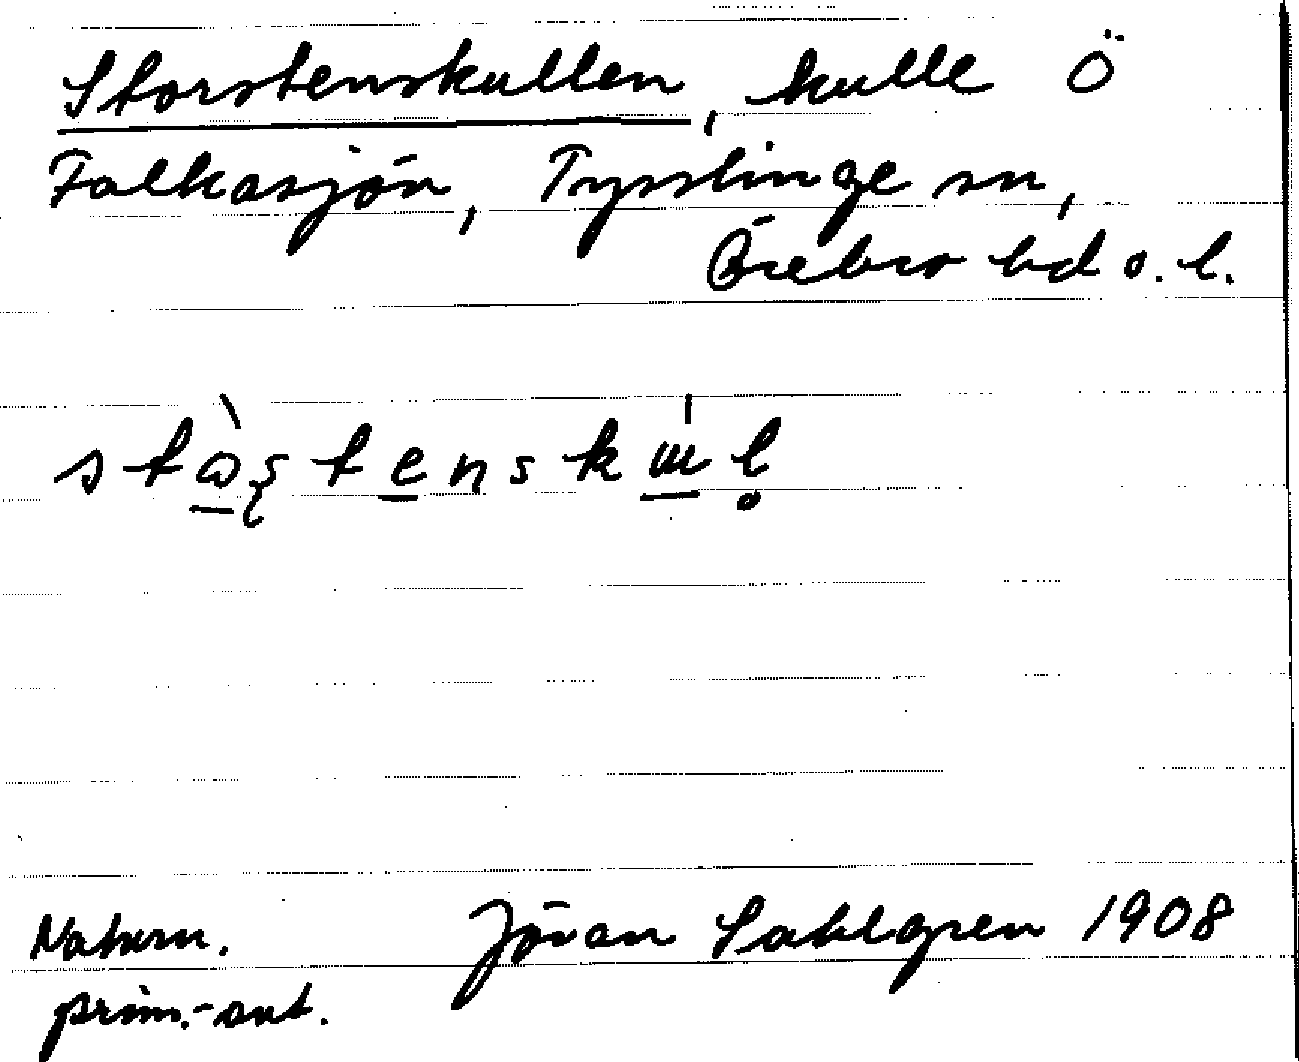 Storstenskullen, kulle Ö
Falkasjön, Tysslinge sn,
Örebro hd o. l.
Naturn. Jöran Sahlgren 1908
prim.-ant.